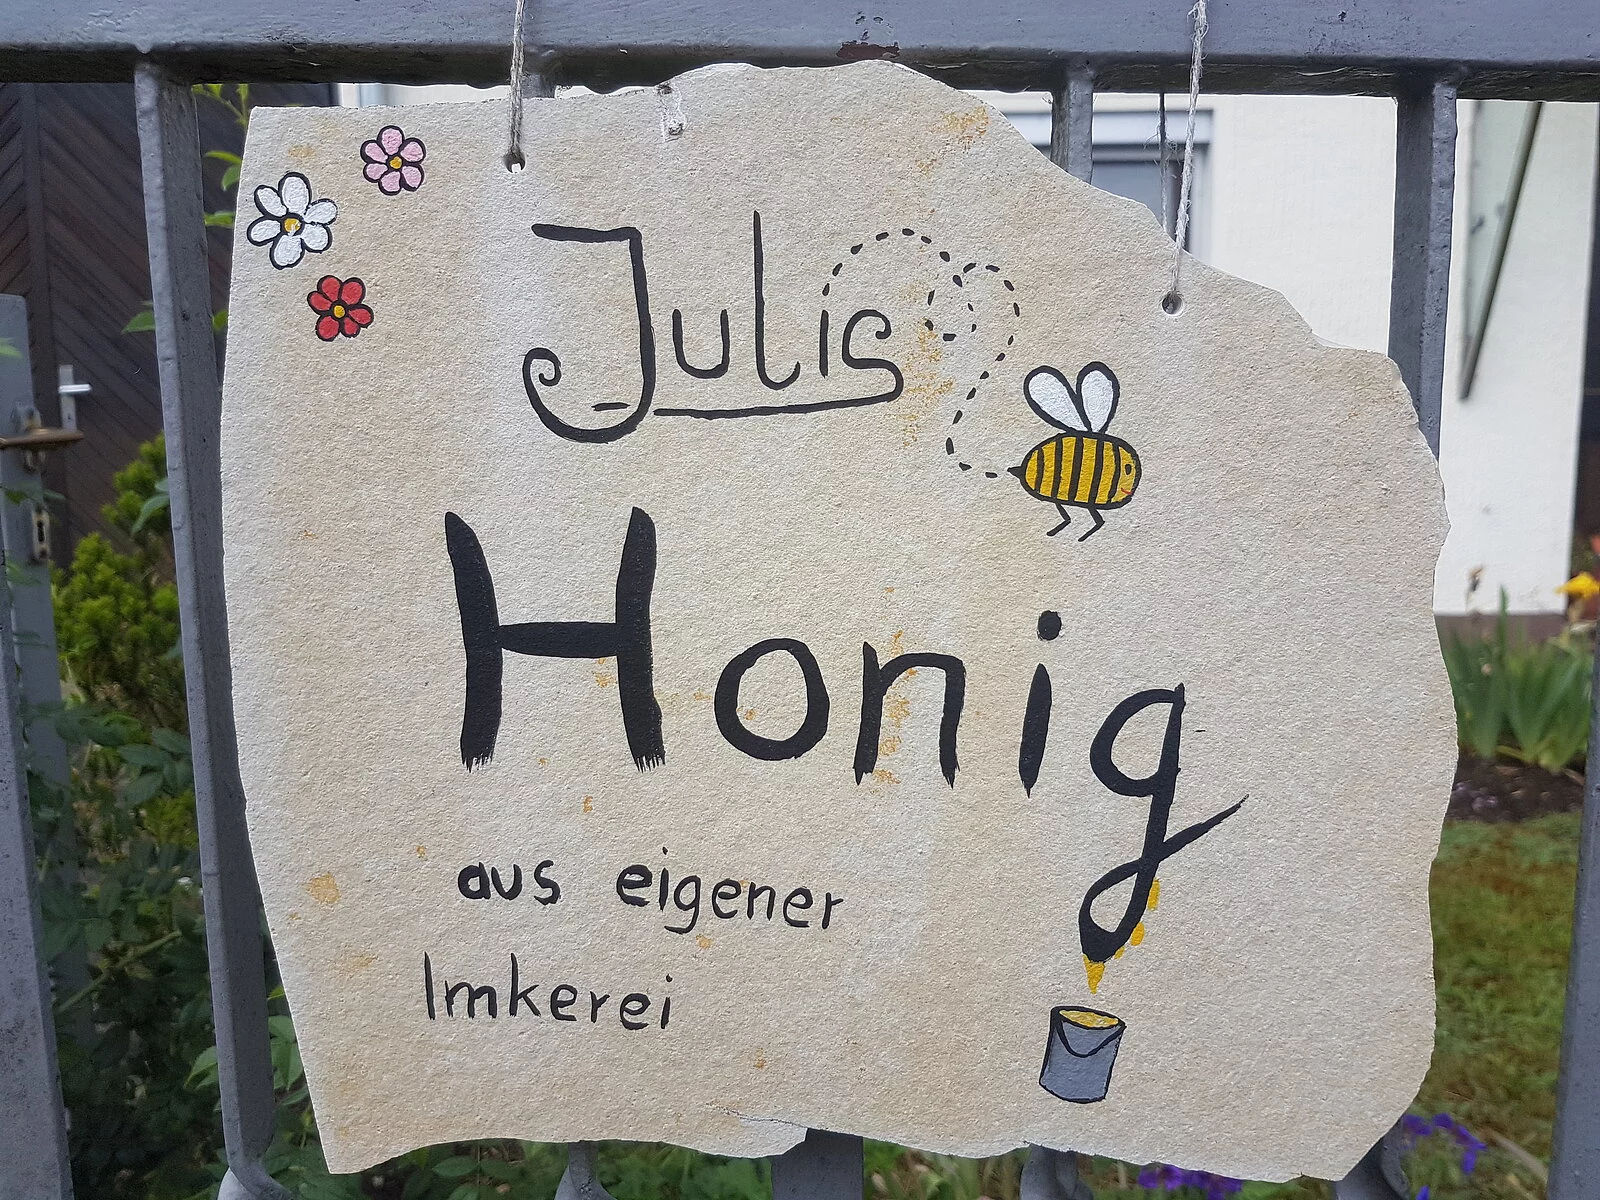 Julis
Honig
aus eigener
Imkerei